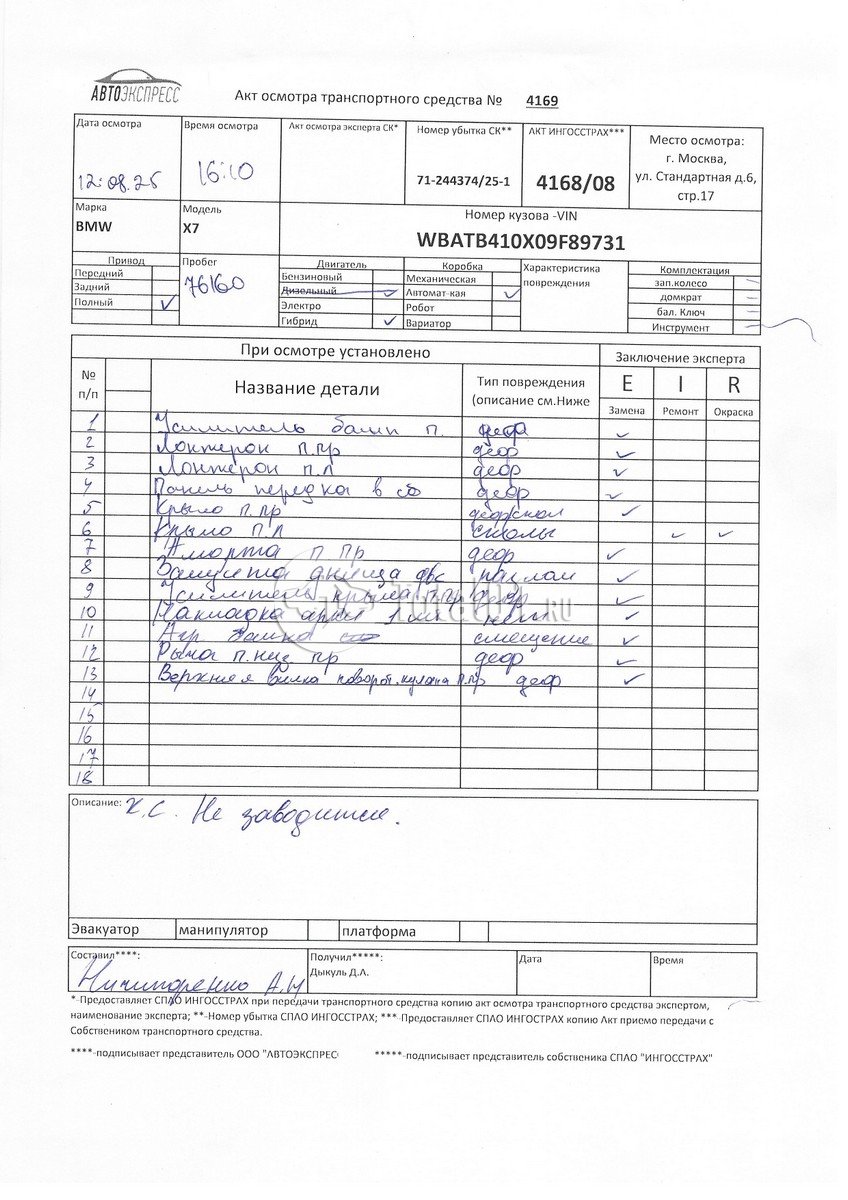 АВТОЭКСПРЕСС
Акт осмотра транспортного средства № 4169
Дата осмотра
12.08.25
Время осмотра
16:10
Акт осмотра эксперта СК*
Номер убытка СК**
71-244374/25-1
АКТ ИНГОССТРАХ***
4168/08
Место осмотра:
г. Москва,
ул. Стандартная д.6,
стр.17
Марка
BMW
Модель
X7
Номер кузова -VIN
WBATB410X09F89731
Привод
Передний
Задний
Полный ✓
Пробег
76160
Двигатель
Бензиновый
Дизельный ✓
Электро
Гибрид ✓
Коробка
Механическая
Автомат-кая ✓
Робот
Вариатор
Характеристика
повреждения
Комплектация
зап.колесо
домкрат
бал. Ключ
Инструмент
При осмотре установлено
Заключение эксперта
№
п/п
Название детали
Тип повреждения
(описание см.Ниже
E I R
Замена Ремонт Окраска
1 Усилитель бамп п. деф ✓
2 Лонжерон п.пр деф ✓
3 Лонжерон п.л деф ✓
4 Панель передка в сб деф ✓
5 Крыло п.пр ✓
6 Крыло п.л сколы ✓ ✓
7 п пр деф ✓
8 Защита днища двс разлом ✓
9 Усилитель крыла п.пр деф ✓
10 Накладка арки ✓
11 смещение ✓
12 п.ниж пр деф ✓
13 Верхняя вилка поворот.кулака п.пр деф ✓
14
15
16
17
18
Описание: К.С. Не заводится.
Эвакуатор манипулятор платформа
Составил****:
Ничипоренко А.Н
Получил*****:
Дыкуль Д.А.
Дата
Время
*-Предоставляет СПАО ИНГОССТРАХ при передачи транспортного средства копию акт осмотра транспортного средства экспертом,
наименование эксперта; **-Номер убытка СПАО ИНГОССТРАХ; ***-Предоставляет СПАО ИНГОСТРАХ копию Акт приемо передачи с
Собствеником транспортного средства.
****-подписывает представитель ООО "АВТОЭКСПРЕСС
*****-подписывает представитель собственика СПАО "ИНГОССТРАХ"